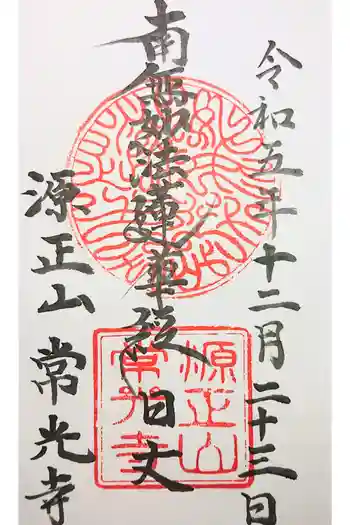 令和五年十二月二十三日
南無妙法蓮華経
源正山
常光寺
源正山
常光寺